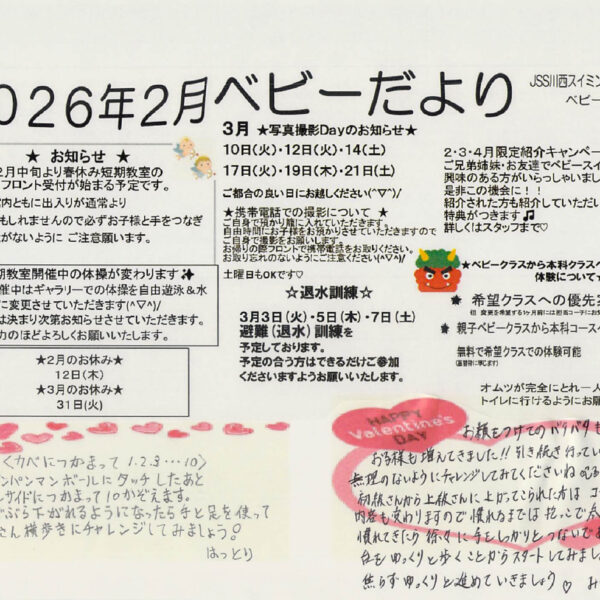 026年2月ベビーだより
JSS川西スイミン
ベビー
★ お知らせ ★
2月中旬より春休み短期教室の
フロント受付が始まる予定です。
内ともに出入りが通常より
もしれませんので必ずお子様と手をつなぎ
がないように ご注意願います。
教室開催中の体操が変わります✨
催中はギャラリーでの体操を自由遊泳&水
に変更させていただきます(^▽^)/
は決まり次第お知らせさせていただきます。
力のほどよろしくお願いいたします。
★2月のお休み★
12日(木)
★3月のお休み★
31日(火)
3月 ★写真撮影Dayのお知らせ★
10日(火)・12日(火)・14(土)
17日(火)・19日(木)・21日(土)
ご都合の良い日にお越しください(^▽^)/
★携帯電話での撮影について ★
ご自身で預かり籠に入れていただきます。
自由時間にお子様をお預かりさせていただきますので
ご自身で撮影をお願いします。
お帰りの際フロントで携帯電話をお取りください。
お取り忘れのないようにご注意ください(^▽^)/
土曜日もOKです♡
☆退水訓練☆
3月3日(火)・5日(木)・7日(土)
避難(退水)訓練を
予定しております。
予定の合う方はできるだけご参加
くださいますようお願いいたします。
2・3・4月限定紹介キャンペーン
ご兄弟姉妹・お友達でベビース
興味のある方がいらっしゃいまし
是非この機会に!!
紹介された方も紹介していただい
特典がつきます♫
詳しくはスタッフまで♡
★ベビークラスから本科クラスへ
体験について★
★ 希望クラスへの優先
★ 親子ベビークラスから本科コースへ
無料で希望クラスでの体験可能
オムツが完全にとれ一人
トイレに行けるようにお願
〈カベにつかまって 1.2.3…10〉
ンパンマンボールにタッチしたあと
ルサイドにつかまって10かぞえます。
ぶら下がれるようになったら手と足を使って
さん横歩きにチャレンジしてみましょう!
はっとり
HAPPY
Valentine's
DAY
お顔をつけてのバタバタも
お子様も増えてきました!! 引き続き行ってい
無理のないようにチャレンジしてみてくださいね
初級さんから上級さんに上がってこられた方は コ
内容も変わりますので慣れるまでは抱っこで
慣れてきたら徐々に手をしっかりとつないで
台をゆっくりと歩くことからスタートしてみまし
焦らずゆっくりと進めていきましょう♡ み